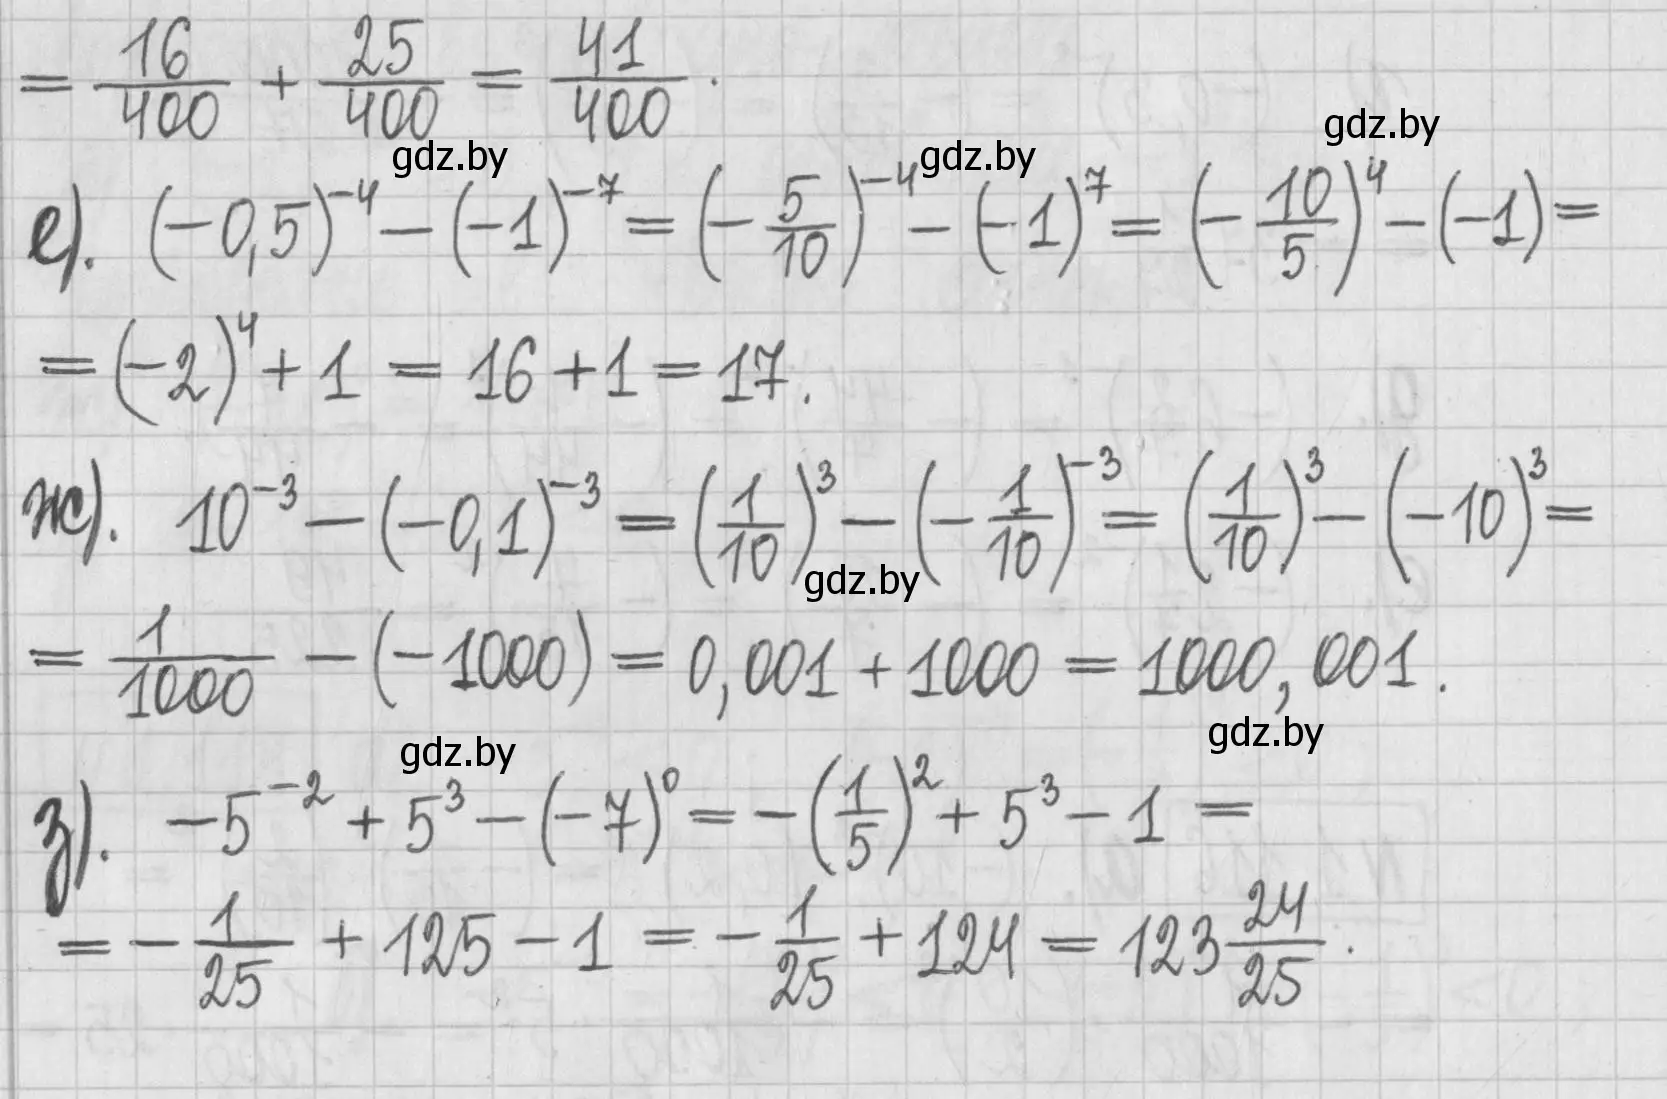 = 16/400 + 25/400 = 41/400.
gdz.by gdz.by gdz.by
е). (-0,5)^-4 - (-1)^-7 = (-5/10)^-4 - (-1)^7 = (-10/5)^4 - (-1) =
= (-2)^4 + 1 = 16 + 1 = 17.
ж). 10^-3 - (-0,1)^-3 = (1/10)^3 - (-1/10)^-3 = (1/10)^3 - (-10)^3 =
gdz.by
= 1/1000 - (-1000) = 0,001 + 1000 = 1000,001.
gdz.by gdz.by
з). -5^-2 + 5^3 - (-7)^0 = -(1/5)^2 + 5^3 - 1 =
= -1/25 + 125 - 1 = -1/25 + 124 = 123 24/25.